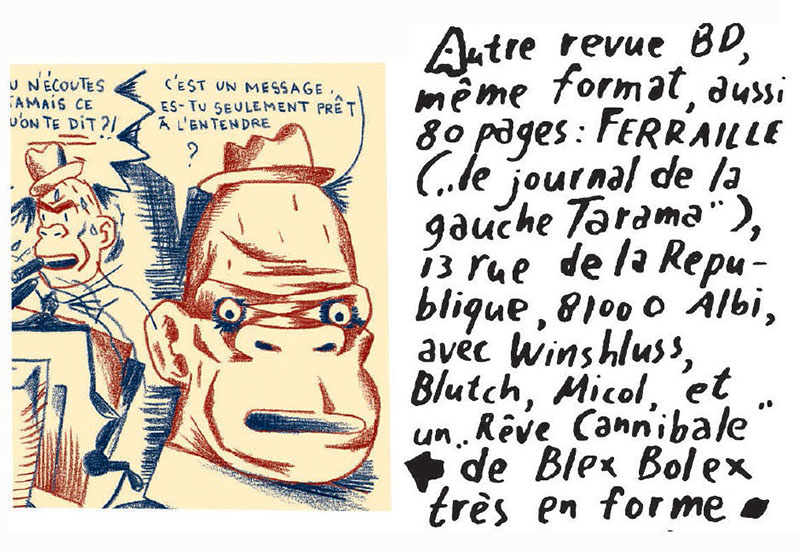 U N'ÉCOUTES
JAMAIS CE
U'ON TE DIT?!
C'EST UN MESSAGE,
ES-TU SEULEMENT PRÊT
À L'ENTENDRE
?
Autre revue BD,
même format, aussi
80 pages : FERRAILLE
("le journal de la
gauche Tarama"),
13 rue de la Repu-
blique, 81000 Albi,
avec Winshluss,
Blutch, Micol, et
un "Rêve Cannibale"
de Blex Bolex
très en forme